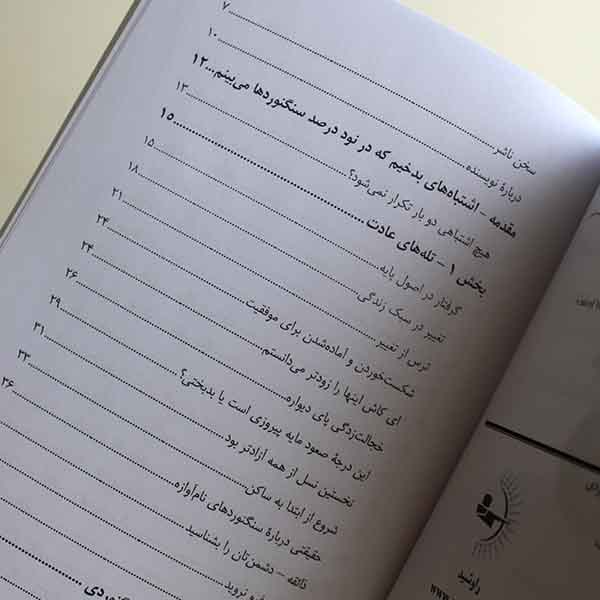 سخن ناشر ۷
دربارهٔ نویسنده ۱۰
مقدمه – اشتباه‌های بدخیم که در نود درصد سنگنوردها می‌بینم ۱۲
هیچ اشتباهی دو بار تکرار نمی‌شود؟ ۱۳
بخش ۱ – تله‌های عادت ۱۵
گرفتار در اصول پایه ۱۵
تغییر در سبک زندگی ۱۸
ترس از تغییر ۲۱
شکست‌خوردن و آماده‌شدن برای موفقیت ۲۴
ای کاش اینها را زودتر می‌دانستم ۲۴
خجالت‌زدگی پای دیواره ۲۶
این درجهٔ صعود مایه پیروزی است یا بدبختی؟ ۲۹
نخستین نسل از همه آزادتر بود ۳۱
شروع از ابتدا به ساکن ۳۳
حقیقتی دربارهٔ سنگنوردهای نام‌آوازه ۳۶
ذائقه – دشمن‌تان را بشناسید
و نروید
راوشید
www.